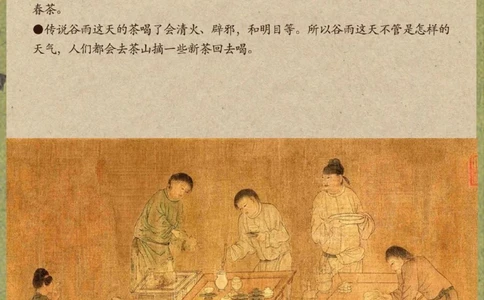 春茶。
●传说谷雨这天的茶喝了会清火、辟邪，和明目等。所以谷雨这天不管是怎样的
天气，人们都会去茶山摘一些新茶回去喝。